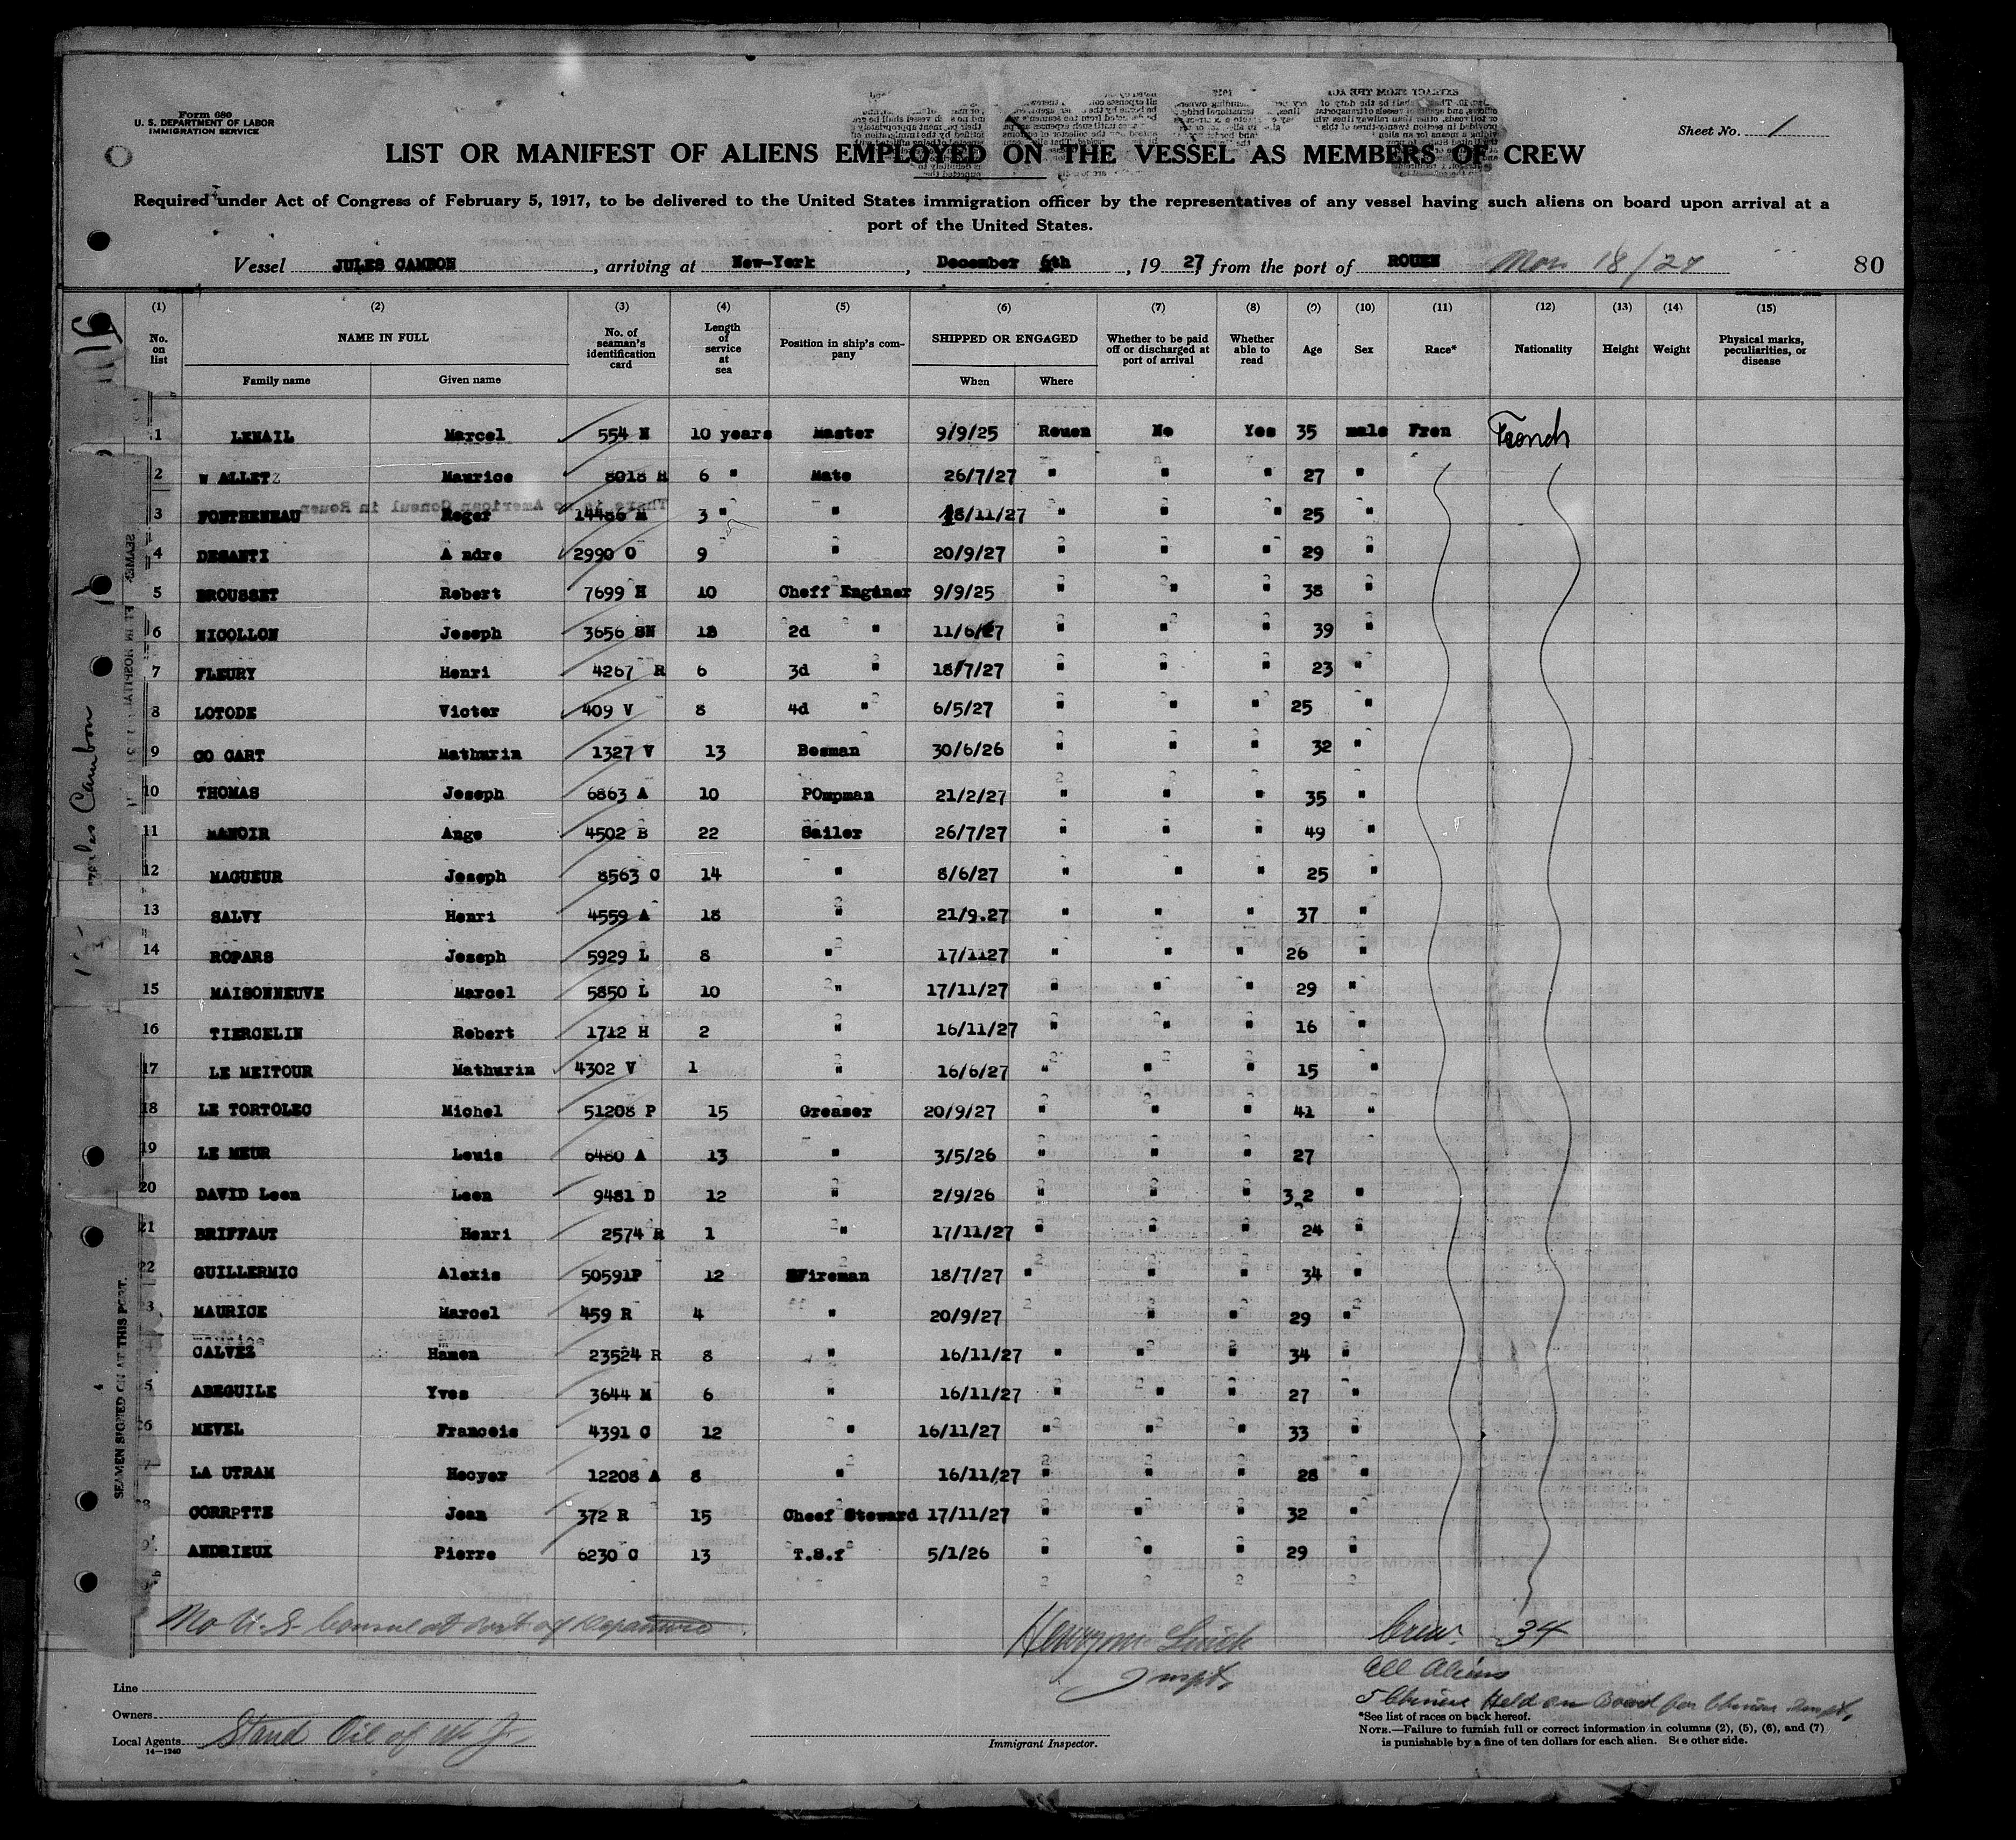 Form 680
U. S. DEPARTMENT OF LABOR
IMMIGRATION SERVICE
Sheet No. 1
LIST OR MANIFEST OF ALIENS EMPLOYED ON THE VESSEL AS MEMBERS OF CREW
Required under Act of Congress of February 5, 1917, to be delivered to the United States immigration officer by the representatives of any vessel having such aliens on board upon arrival at a
port of the United States.
Vessel JULES CAMBON, arriving at New-York, December 6th, 1927 from the port of ROUEN 80
(1) (2) (3) (4) (5) (6) (7) (8) (9) (10) (11) (12) (13) (14) (15)
No. on list NAME IN FULL No. of seaman's identification card Length of service at sea Position in ship's company SHIPPED OR ENGAGED Whether to be paid off or discharged at port of arrival Whether able to read Age Sex Race* Nationality Height Weight Physical marks, peculiarities, or disease
Family name Given name When Where
1 LEMAIL Marcel 554 N 10 years Master 9/9/25 Rouen No Yes 35 male Fren French
2 W ALLETZ Maurice 8018 H 6 " Mate 26/7/27 " " " 27 "
3 FONTHENEAU Roger 14486 M 3 " " 18/11/27 " " " 25 "
4 DESANTI A ndre 2990 O 9 " 20/9/27 " " " 29 "
5 BROUSSET Robert 7699 H 10 Cheff Enginer 9/9/25 " " " 38 "
6 NICOLLON Joseph 3656 SN 18 2d " 11/6/27 " " " 39 "
7 FLEURY Henri 4267 R 6 3d " 18/7/27 " " " 23 "
8 LOTODE Victor 409 V 8 4d " 6/5/27 " " " 25 "
9 GO CART Mathurin 1327 V 13 Bosman 30/6/26 " " " 32 "
10 THOMAS Joseph 6863 A 10 POmpman 21/2/27 " " " 35 "
11 MANOIR Ange 4502 B 22 Sailor 26/7/27 " " " 49 "
12 MAGUEUR Joseph 8563 C 14 " 8/6/27 " " " 25 "
13 SALVY Henri 4559 A 18 " 21/9.27 " " " 37 "
14 ROPARS Joseph 5929 L 8 " 17/1127 " " " 26 "
15 MAISONNEUVE Marcel 5850 L 10 " 17/11/27 " " " 29 "
16 TIERCELIN Robert 1712 H 2 " 16/11/27 " " " 16 "
17 LE MEITOUR Mathurin 4302 V 1 " 16/6/27 " " " 15 "
18 LE TORTOLEC Michel 51208 P 15 Greaser 20/9/27 " " " 41 "
19 LE MEUR Louis 6480 A 13 " 3/5/26 " " " 27
20 DAVID Leon Leon 9481 D 12 " 2/9/26 " " " 32 "
21 BRIFFAUT Henri 2574 R 1 " 17/11/27 " " " 24 "
22 GUILLERMIC Alexis 50591P 12 Fireman 18/7/27 " " " 34 "
3 MAURICE Marcel 459 R 4 " 20/9/27 " " 29 "
maurice
CALVEZ Hamon 23524 R 8 " 16/11/27 " " " 34 "
5 ABEGUILE Yves 3644 M 6 " 16/11/27 " " " 27 "
26 MEVEL Francois 4391 C 12 " 16/11/27 " " " 33 "
7 LA UTRAM Hecyer 12208 A 8 " 16/11/27 " " " 28 "
28 CORRPTTE Jean 372 R 15 Cheef Steward 17/11/27 " " " 32 "
9 ANDRIEUX Pierre 6230 C 13 T.S.f 5/1/26 " " " 29 "
There is no American Consul in Rouen
Jules Cambon
SEAMEN SIGNED ON AT THIS PORT.
No U.S. Consul at Port of Departure
Crew 34
All Aliens
5 Chinese Held on Board for Chinese Inspt.
Inspt.
Line
Owners
Local Agents Stand Oil of N. J.
14—1240
Immigrant Inspector.
*See list of races on back hereof.
NOTE.—Failure to furnish full or correct information in columns (2), (5), (6), and (7)
is punishable by a fine of ten dollars for each alien. See other side.